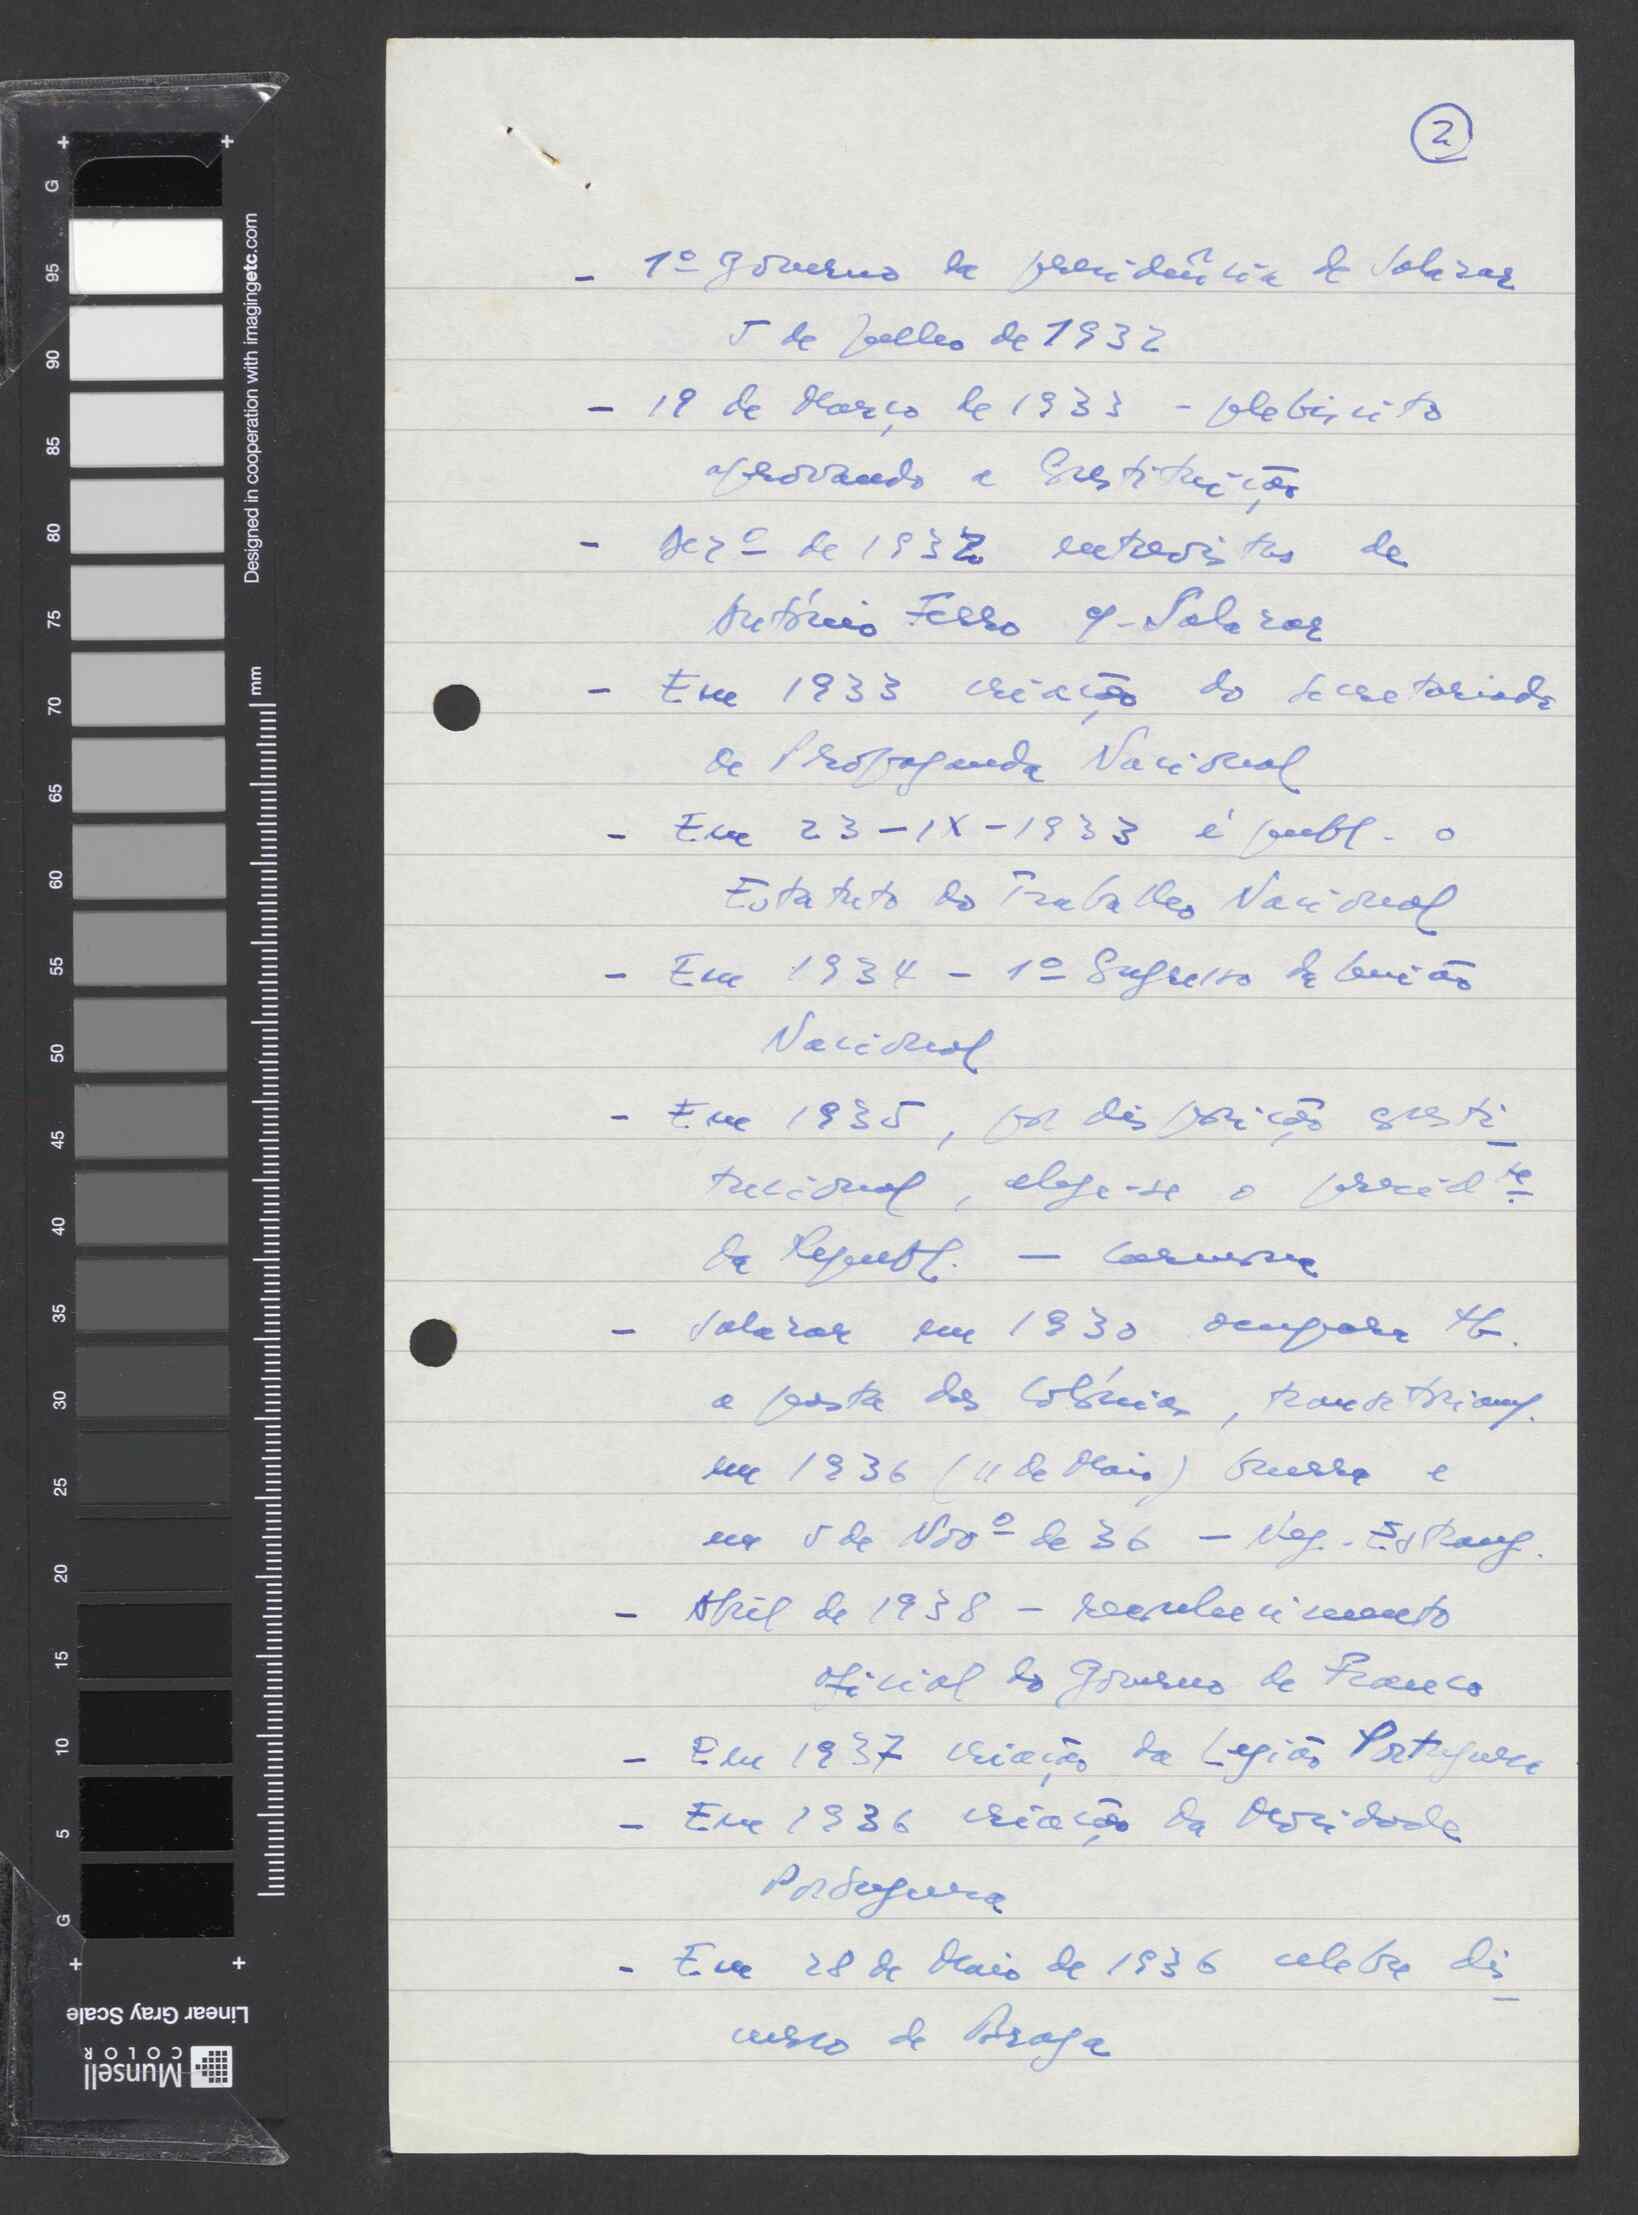 2
- 1º governo da presidência de Salazar
5 de Julho de 1932
- 19 de Março de 1933 - plebiscito
aprovando a Constituição
- Dezº de 1932 entrevistas de
António Ferro c/ Salazar
- Em 1933 criação do secretariado
de Propaganda Nacional
- Em 23-IX-1933 é publ. o
Estatuto do Trabalho Nacional
- Em 1934 - 1º Congresso da União
Nacional
- Em 1935, por disposição consti
tucional, elege-se o presidte
da Republ. - Carmona
- Salazar em 1930 ocupara tb.
a pasta das Colónias, transitoriam.
em 1936 (11 de Maio) Guerra e
em 5 de Novº de 36 - Neg. Estrang.
- Abril de 1938 - reconhecimento
oficial do governo de Franco
- Em 1937 criação da Legião Portuguesa
- Em 1936 criação da Mocidade
Portuguesa
- Em 28 de Maio de 1936 celebre dis
curso de Braga
G 95 90 85 80 75 70 65 60 55 50 45 40 35 30 25 20 15 10 5 G
Designed in cooperation with imagingetc.com
mm
Linear Gray Scale
Munsell
COLOR